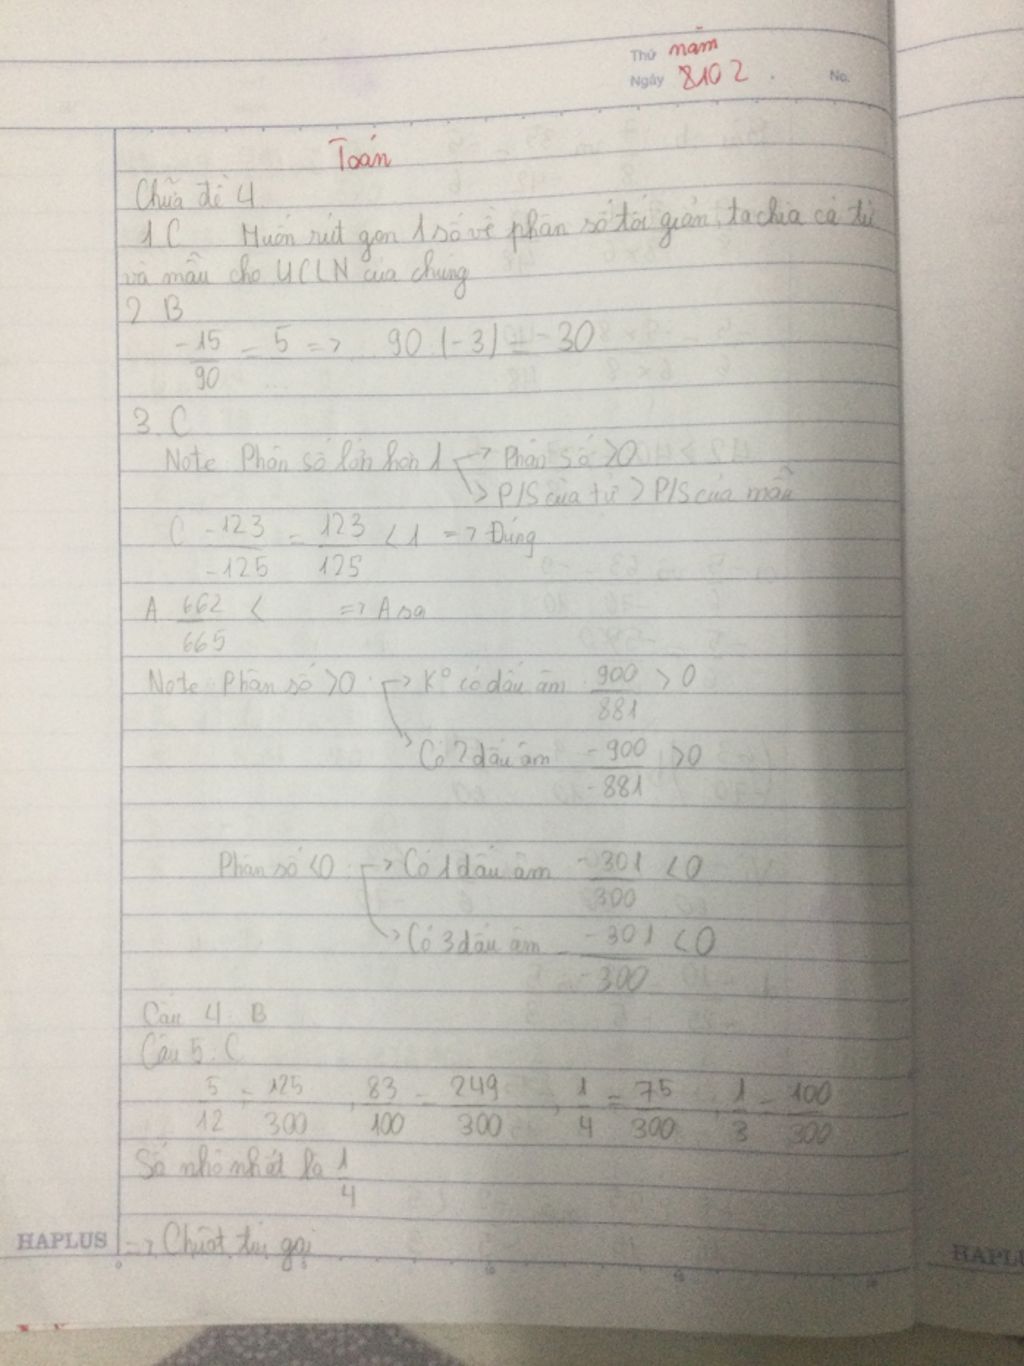 Thứ năm
Ngày 8102 No.
Toán
Chữa đề 4
1 C Muốn rút gọn 1 số về phân số tối giản, ta chia cả tử
và mẫu cho ƯCLN của chúng
2 B
-15/90 = 5 => 90 : (-3) = -30
3. C
Note Phân số lớn hơn 1 -> Phân số >0
-> P/S của tử > P/S của mẫu
C -123/-125 = 123/125 < 1 => Đúng
A 662/665 < => A sai
Note Phân số >0 -> K° có dấu âm 900/881 > 0
-> Có 2 dấu âm -900/-881 >0
Phân số <0 -> Có 1 dấu âm -301/300 <0
-> Có 3 dấu âm - -301/-300 <0
Câu 4. B
Câu 5. C
5/12 = 125/300, 83/100 = 249/300, 1/4 = 75/300, 1/3 = 100/300
Số nhỏ nhất là 1/4
HAPLUS => Chuột túi
HAPLU